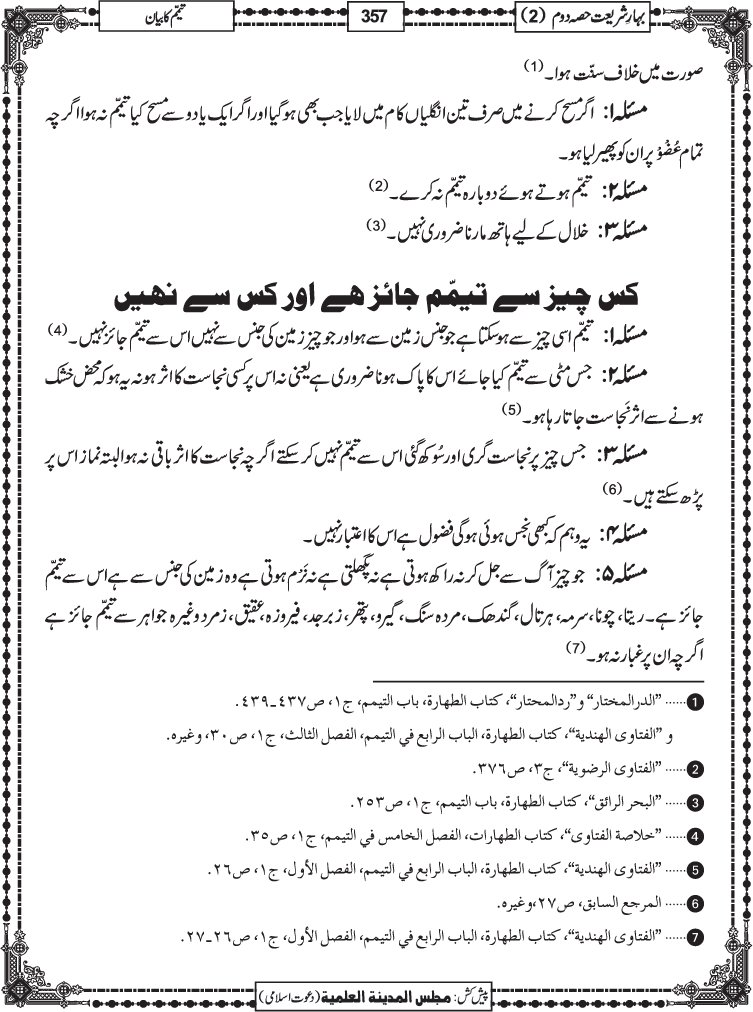 بہارِ شریعت حصہ دوم (2)
357
تیمّم کا بیان
صورت میں خلاف سنّت ہوا۔ (1)
مسئلہ ۱: اگر مسح کرنے میں صرف تین انگلیاں کام میں لایا جب بھی ہوگیا اور اگر ایک یا دو سے مسح کیا تیمّم نہ ہوا اگرچہ
تمام عُضْوْ پر ان کو پھیر لیا ہو۔
مسئلہ ۲: تیمّم ہوتے ہوئے دوبارہ تیمّم نہ کرے۔ (2)
مسئلہ ۳: خلال کے لیے ہاتھ مارنا ضروری نہیں۔ (3)
کس چیز سے تیمّم جائز ھے اور کس سے نھیں
مسئلہ ۱: تیمّم اسی چیز سے ہو سکتا ہے جو جنس زمین سے ہو اور جو چیز زمین کی جنس سے نہیں اس سے تیمّم جائز نہیں۔ (4)
مسئلہ ۲: جس مٹی سے تیمّم کیا جائے اس کا پاک ہونا ضروری ہے یعنی نہ اس پر کسی نجاست کا اثر ہو نہ یہ ہو کہ محض خشک
ہونے سے اثرِ نَجاست جاتا رہا ہو۔ (5)
مسئلہ ۳: جس چیز پر نجاست گری اور سُوکھ گئی اس سے تیمّم نہیں کر سکتے اگرچہ نجاست کا اثر باقی نہ ہو البتہ نماز اس پر
پڑھ سکتے ہیں۔ (6)
مسئلہ ۴: یہ وہم کہ کبھی نجس ہوئی ہوگی فضول ہے اس کا اعتبار نہیں۔
مسئلہ ۵: جو چیز آگ سے جل کر نہ راکھ ہوتی ہے نہ پگھلتی ہے نہ نَرْم ہوتی ہے وہ زمین کی جنس سے ہے اس سے تیمّم
جائز ہے۔ ریتا، چونا، سرمہ، ہرتال، گندھک، مردہ سنگ، گیرو، پتھر، زبرجد، فیروزہ، عقیق، زمرد وغیرہ جواہر سے تیمّم جائز ہے
اگرچہ ان پر غبار نہ ہو۔ (7)
1 ...... ”الدرالمختار“ و”ردالمحتار“، کتاب الطهارة، باب التیمم، ج١، ص٤٣٧-٤٣٩.
و ”الفتاوی الهندیة“، کتاب الطهارة، الباب الرابع في التیمم، الفصل الثالث، ج١، ص٣٠، وغیره.
2 ...... ”الفتاوی الرضویة“، ج٣، ص٣٧٦.
3 ...... ”البحر الرائق“، کتاب الطهارة، باب التیمم، ج١، ص٢٥٣.
4 ...... ”خلاصة الفتاوی“، کتاب الطهارات، الفصل الخامس في التیمم، ج١، ص٣٥.
5 ...... ”الفتاوی الهندیة“، کتاب الطهارة، الباب الرابع في التیمم، الفصل الأول، ج١، ص٢٦.
6 ...... المرجع السابق، ص٢٧، وغیره.
7 ...... ”الفتاوی الهندیة“، کتاب الطهارة، الباب الرابع في التیمم، الفصل الأول، ج١، ص٢٦-٢٧.
پیش کش: مجلس المدینة العلمیة (دعوت اسلامی)